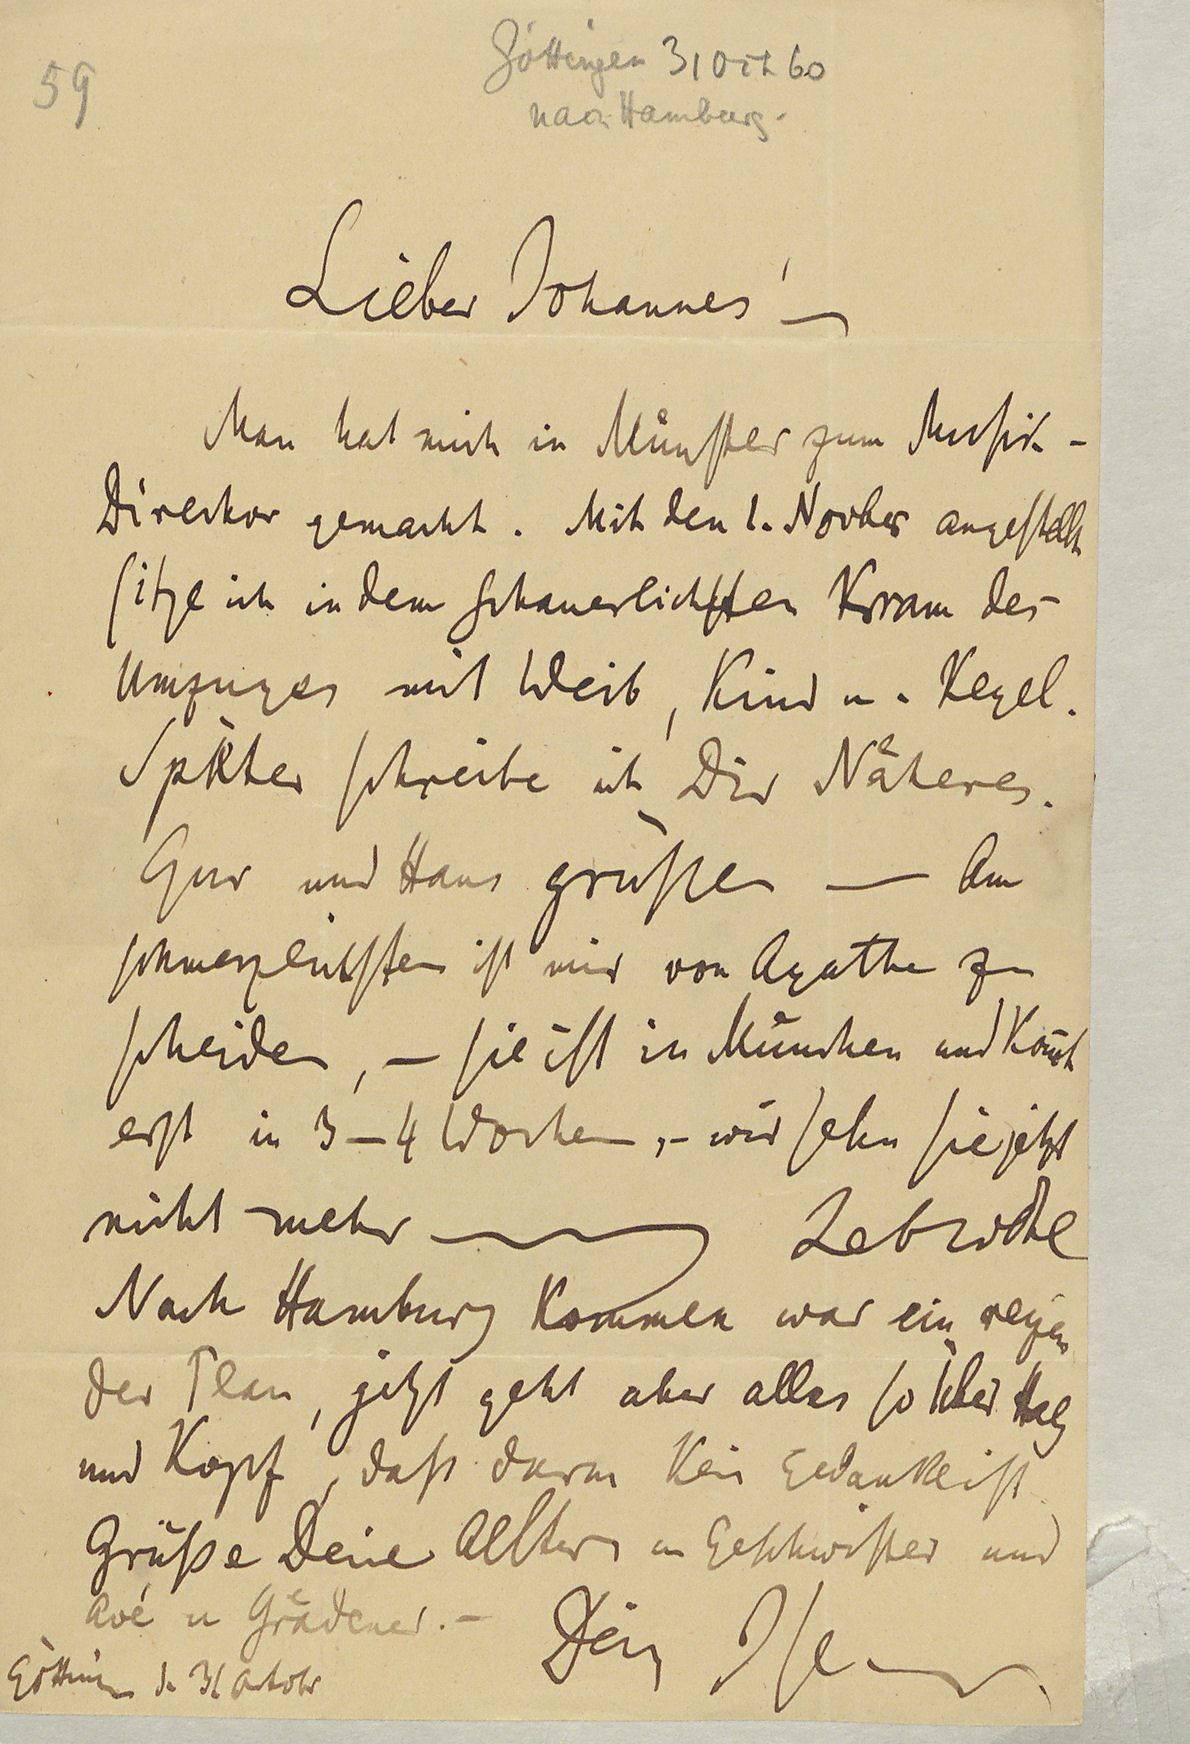 59
Göttingen 31 Oct 60
nach Hamburg.
Lieber Johannes!
Man hat mich in Münster zum Musik-
Director gemacht. Mit den 1. Novber angestellt
sitze ich in dem schauerlichsten Kram des
Umzuges mit Weib, Kind u. Kegel.
Später schreibe ich Dir Näheres.
Gur und Hans grüßen — Am
schmerzlichsten ist mir von Agathe zu
scheiden, — sie ist in München und kom̅t
erst in 3–4 Wochen, – wir sehn sie jetzt
nicht mehr — Lebwohl
Nach Hamburg kommen war ein reizen
der Plan, jetzt geht aber alles so über Hals
und Kopf, daß daran kein Gedanke ist
Grüße Deine Aeltern u Geschwister und
Avé u Grädener. –
Dein
Göttingen d. 31 Octobr